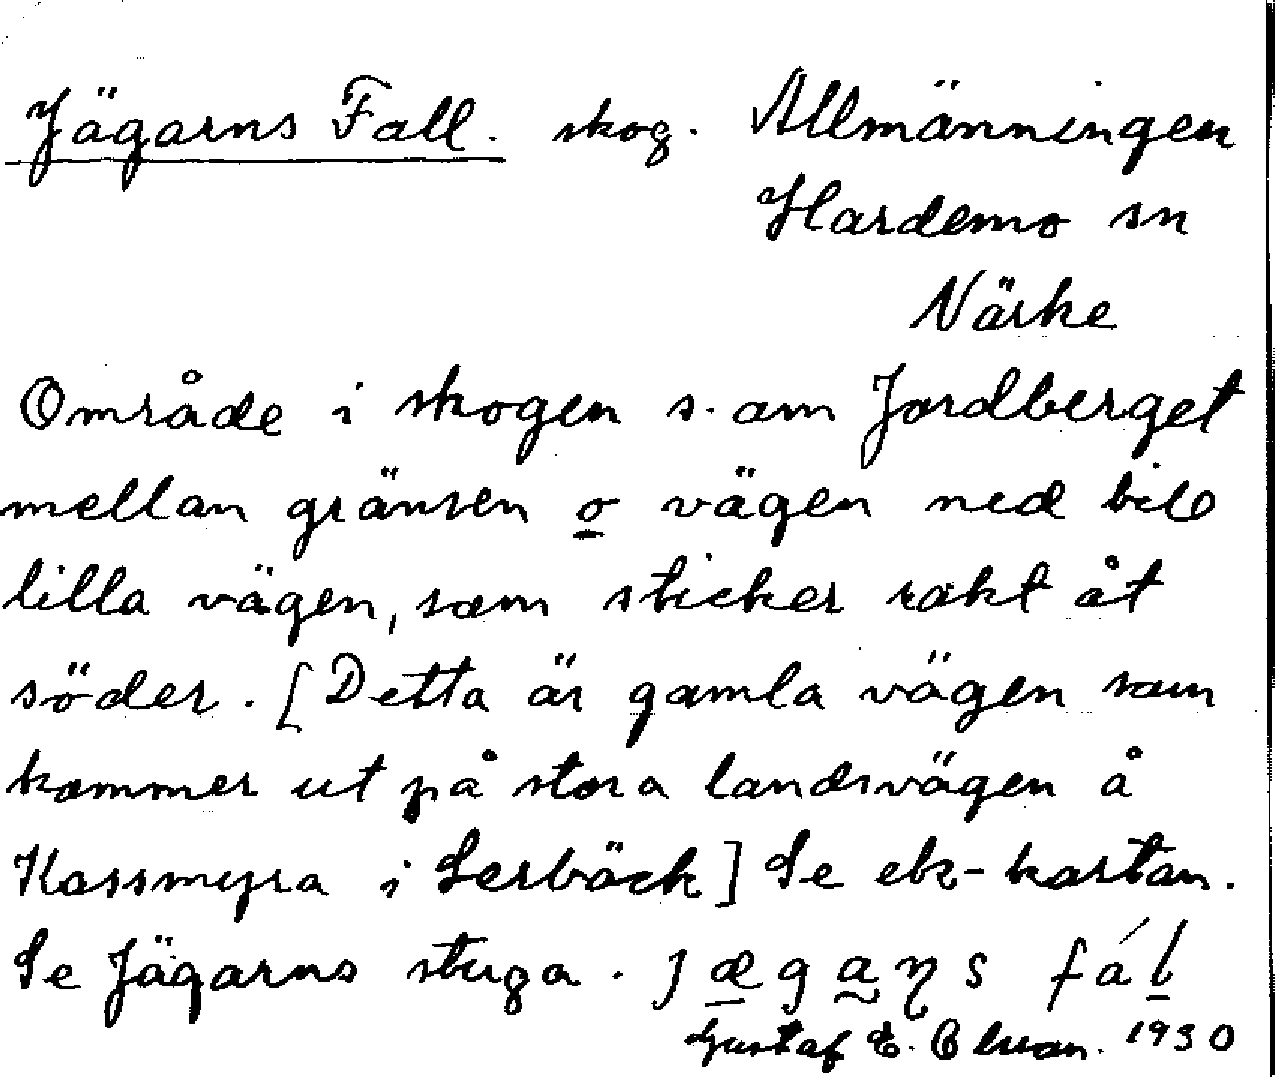 Jägarns Fall. skog. Allmänningen
Hardemo sn
Närke
Område i skogen s. om Jordberget
mellan gränsen o vägen ned till
lilla vägen, som sticker rakt åt
söder. [Detta är gamla vägen som
kommer ut på stora landsvägen å
Kassmyra i Lerbäck] Se ek-kartan.
Se Jägarns stuga. jægaṇs fál
Gustaf E. 1930